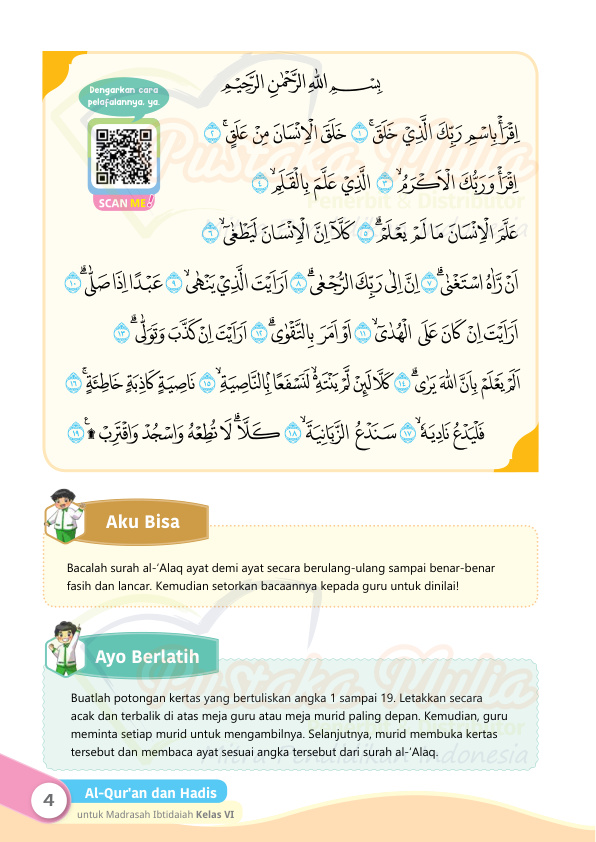 Dengarkan cara
pelafalannya, ya.
SCAN ME!
بِسْــــمِ اللّٰهِ الرَّحْمٰنِ الرَّحِيْمِ
اِقْرَأْ بِاسْمِ رَبِّكَ الَّذِيْ خَلَقَۚ ١ خَلَقَ الْاِنْسَانَ مِنْ عَلَقٍۚ ٢
اِقْرَأْ وَرَبُّكَ الْاَكْرَمُۙ ٣ الَّذِيْ عَلَّمَ بِالْقَلَمِۙ ٤
عَلَّمَ الْاِنْسَانَ مَا لَمْ يَعْلَمْۗ ٥ كَلَّآ اِنَّ الْاِنْسَانَ لَيَطْغٰىٓۙ ٦
اَنْ رَّاٰهُ اسْتَغْنٰىۗ ٧ اِنَّ اِلٰى رَبِّكَ الرُّجْعٰىۗ ٨ اَرَاَيْتَ الَّذِيْ يَنْهٰىۙ ٩ عَبْدًا اِذَا صَلّٰىۗ ١٠
اَرَاَيْتَ اِنْ كَانَ عَلَى الْهُدٰىٓۙ ١١ اَوْ اَمَرَ بِالتَّقْوٰىۗ ١٢ اَرَاَيْتَ اِنْ كَذَّبَ وَتَوَلّٰىۗ ١٣
اَلَمْ يَعْلَمْ بِاَنَّ اللّٰهَ يَرٰىۗ ١٤ كَلَّا لَىِٕنْ لَّمْ يَنْتَهِ ەۙ لَنَسْفَعًاۢ بِالنَّاصِيَةِۙ ١٥ نَاصِيَةٍ كَاذِبَةٍ خَاطِئَةٍۚ ١٦
فَلْيَدْعُ نَادِيَهٗۙ ١٧ سَنَدْعُ الزَّبَانِيَةَۙ ١٨ كَلَّاۗ لَا تُطِعْهُ وَاسْجُدْ وَاقْتَرِبْ ۩ ١٩
Aku Bisa
Bacalah surah al-‘Alaq ayat demi ayat secara berulang-ulang sampai benar-benar
fasih dan lancar. Kemudian setorkan bacaannya kepada guru untuk dinilai!
Ayo Berlatih
Buatlah potongan kertas yang bertuliskan angka 1 sampai 19. Letakkan secara
acak dan terbalik di atas meja guru atau meja murid paling depan. Kemudian, guru
meminta setiap murid untuk mengambilnya. Selanjutnya, murid membuka kertas
tersebut dan membaca ayat sesuai angka tersebut dari surah al-‘Alaq.
Pustaka Mulia
Penerbit & Distributor
Mitra Pendidikan Indonesia
4
Al-Qur'an dan Hadis
untuk Madrasah Ibtidaiah Kelas VI